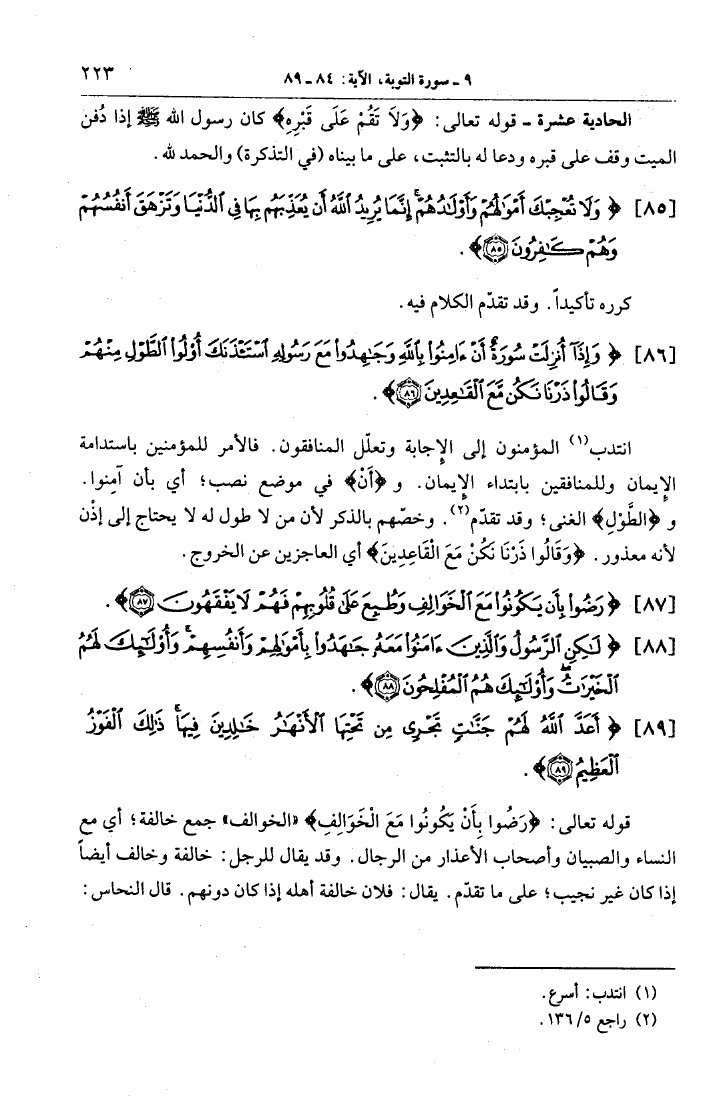 ٩ ـ سورة التوبة، الآية: ٨٤ ـ ٨٩
٢٢٣
الحادية عشرة ـ قوله تعالى: ﴿وَلَا تَقُمْ عَلَى قَبْرِهِ﴾ كان رسول الله ﷺ إذا دُفن
الميت وقف على قبره ودعا له بالتثبت، على ما بيناه (في التذكرة) والحمد لله.
[٨٥] ﴿ وَلَا تُعْجِبْكَ أَمْوَٰلُهُمْ وَأَوْلَـٰدُهُمْ ۚ إِنَّمَا يُرِيدُ ٱللَّهُ أَن يُعَذِّبَهُم بِهَا فِى ٱلدُّنْيَا وَتَزْهَقَ أَنفُسُهُمْ
وَهُمْ كَـٰفِرُونَ ﴿٨٥﴾ ﴾.
كرره تأكيداً. وقد تقدّم الكلام فيه.
[٨٦] ﴿ وَإِذَآ أُنزِلَتْ سُورَةٌ أَنْ ءَامِنُوا۟ بِٱللَّهِ وَجَـٰهِدُوا۟ مَعَ رَسُولِهِ ٱسْتَـْٔذَنَكَ أُو۟لُوا۟ ٱلطَّوْلِ مِنْهُمْ
وَقَالُوا۟ ذَرْنَا نَكُن مَّعَ ٱلْقَـٰعِدِينَ ﴿٨٦﴾ ﴾.
انتدب(١) المؤمنون إلى الإجابة وتعلّل المنافقون. فالأمر للمؤمنين باستدامة
الإيمان وللمنافقين بابتداء الإيمان. و ﴿أَنْ﴾ في موضع نصب؛ أي بأن آمِنوا.
و ﴿الطَّوْلِ﴾ الغنى؛ وقد تقدّم(٢). وخصّهم بالذكر لأن من لا طول له لا يحتاج إلى إذْن
لأنه معذور. ﴿وَقَالُوا ذَرْنَا نَكُنْ مَعَ الْقَاعِدِينَ﴾ أي العاجزين عن الخروج.
[٨٧] ﴿ رَضُوا۟ بِأَن يَكُونُوا۟ مَعَ ٱلْخَوَالِفِ وَطُبِعَ عَلَىٰ قُلُوبِهِمْ فَهُمْ لَا يَفْقَهُونَ ﴿٨٧﴾ ﴾.
[٨٨] ﴿ لَـٰكِنِ ٱلرَّسُولُ وَٱلَّذِينَ ءَامَنُوا۟ مَعَهُ جَـٰهَدُوا۟ بِأَمْوَٰلِهِمْ وَأَنفُسِهِمْ ۚ وَأُو۟لَـٰٓئِكَ لَهُمُ
ٱلْخَيْرَٰتُ ۖ وَأُو۟لَـٰٓئِكَ هُمُ ٱلْمُفْلِحُونَ ﴿٨٨﴾ ﴾.
[٨٩] ﴿ أَعَدَّ ٱللَّهُ لَهُمْ جَنَّـٰتٍ تَجْرِى مِن تَحْتِهَا ٱلْأَنْهَـٰرُ خَـٰلِدِينَ فِيهَا ۚ ذَٰلِكَ ٱلْفَوْزُ
ٱلْعَظِيمُ ﴿٨٩﴾ ﴾.
قوله تعالى: ﴿رَضُوا بِأَنْ يَكُونُوا مَعَ الْخَوَالِفِ﴾ «الخوالف» جمع خالفة؛ أي مع
النساء والصبيان وأصحاب الأعذار من الرجال. وقد يقال للرجل: خالفة وخالف أيضاً
إذا كان غير نجيب؛ على ما تقدّم. يقال: فلان خالفة أهله إذا كان دونهم. قال النحاس:
(١) انتدب: أسرع.
(٢) راجع ١٣٦/٥.